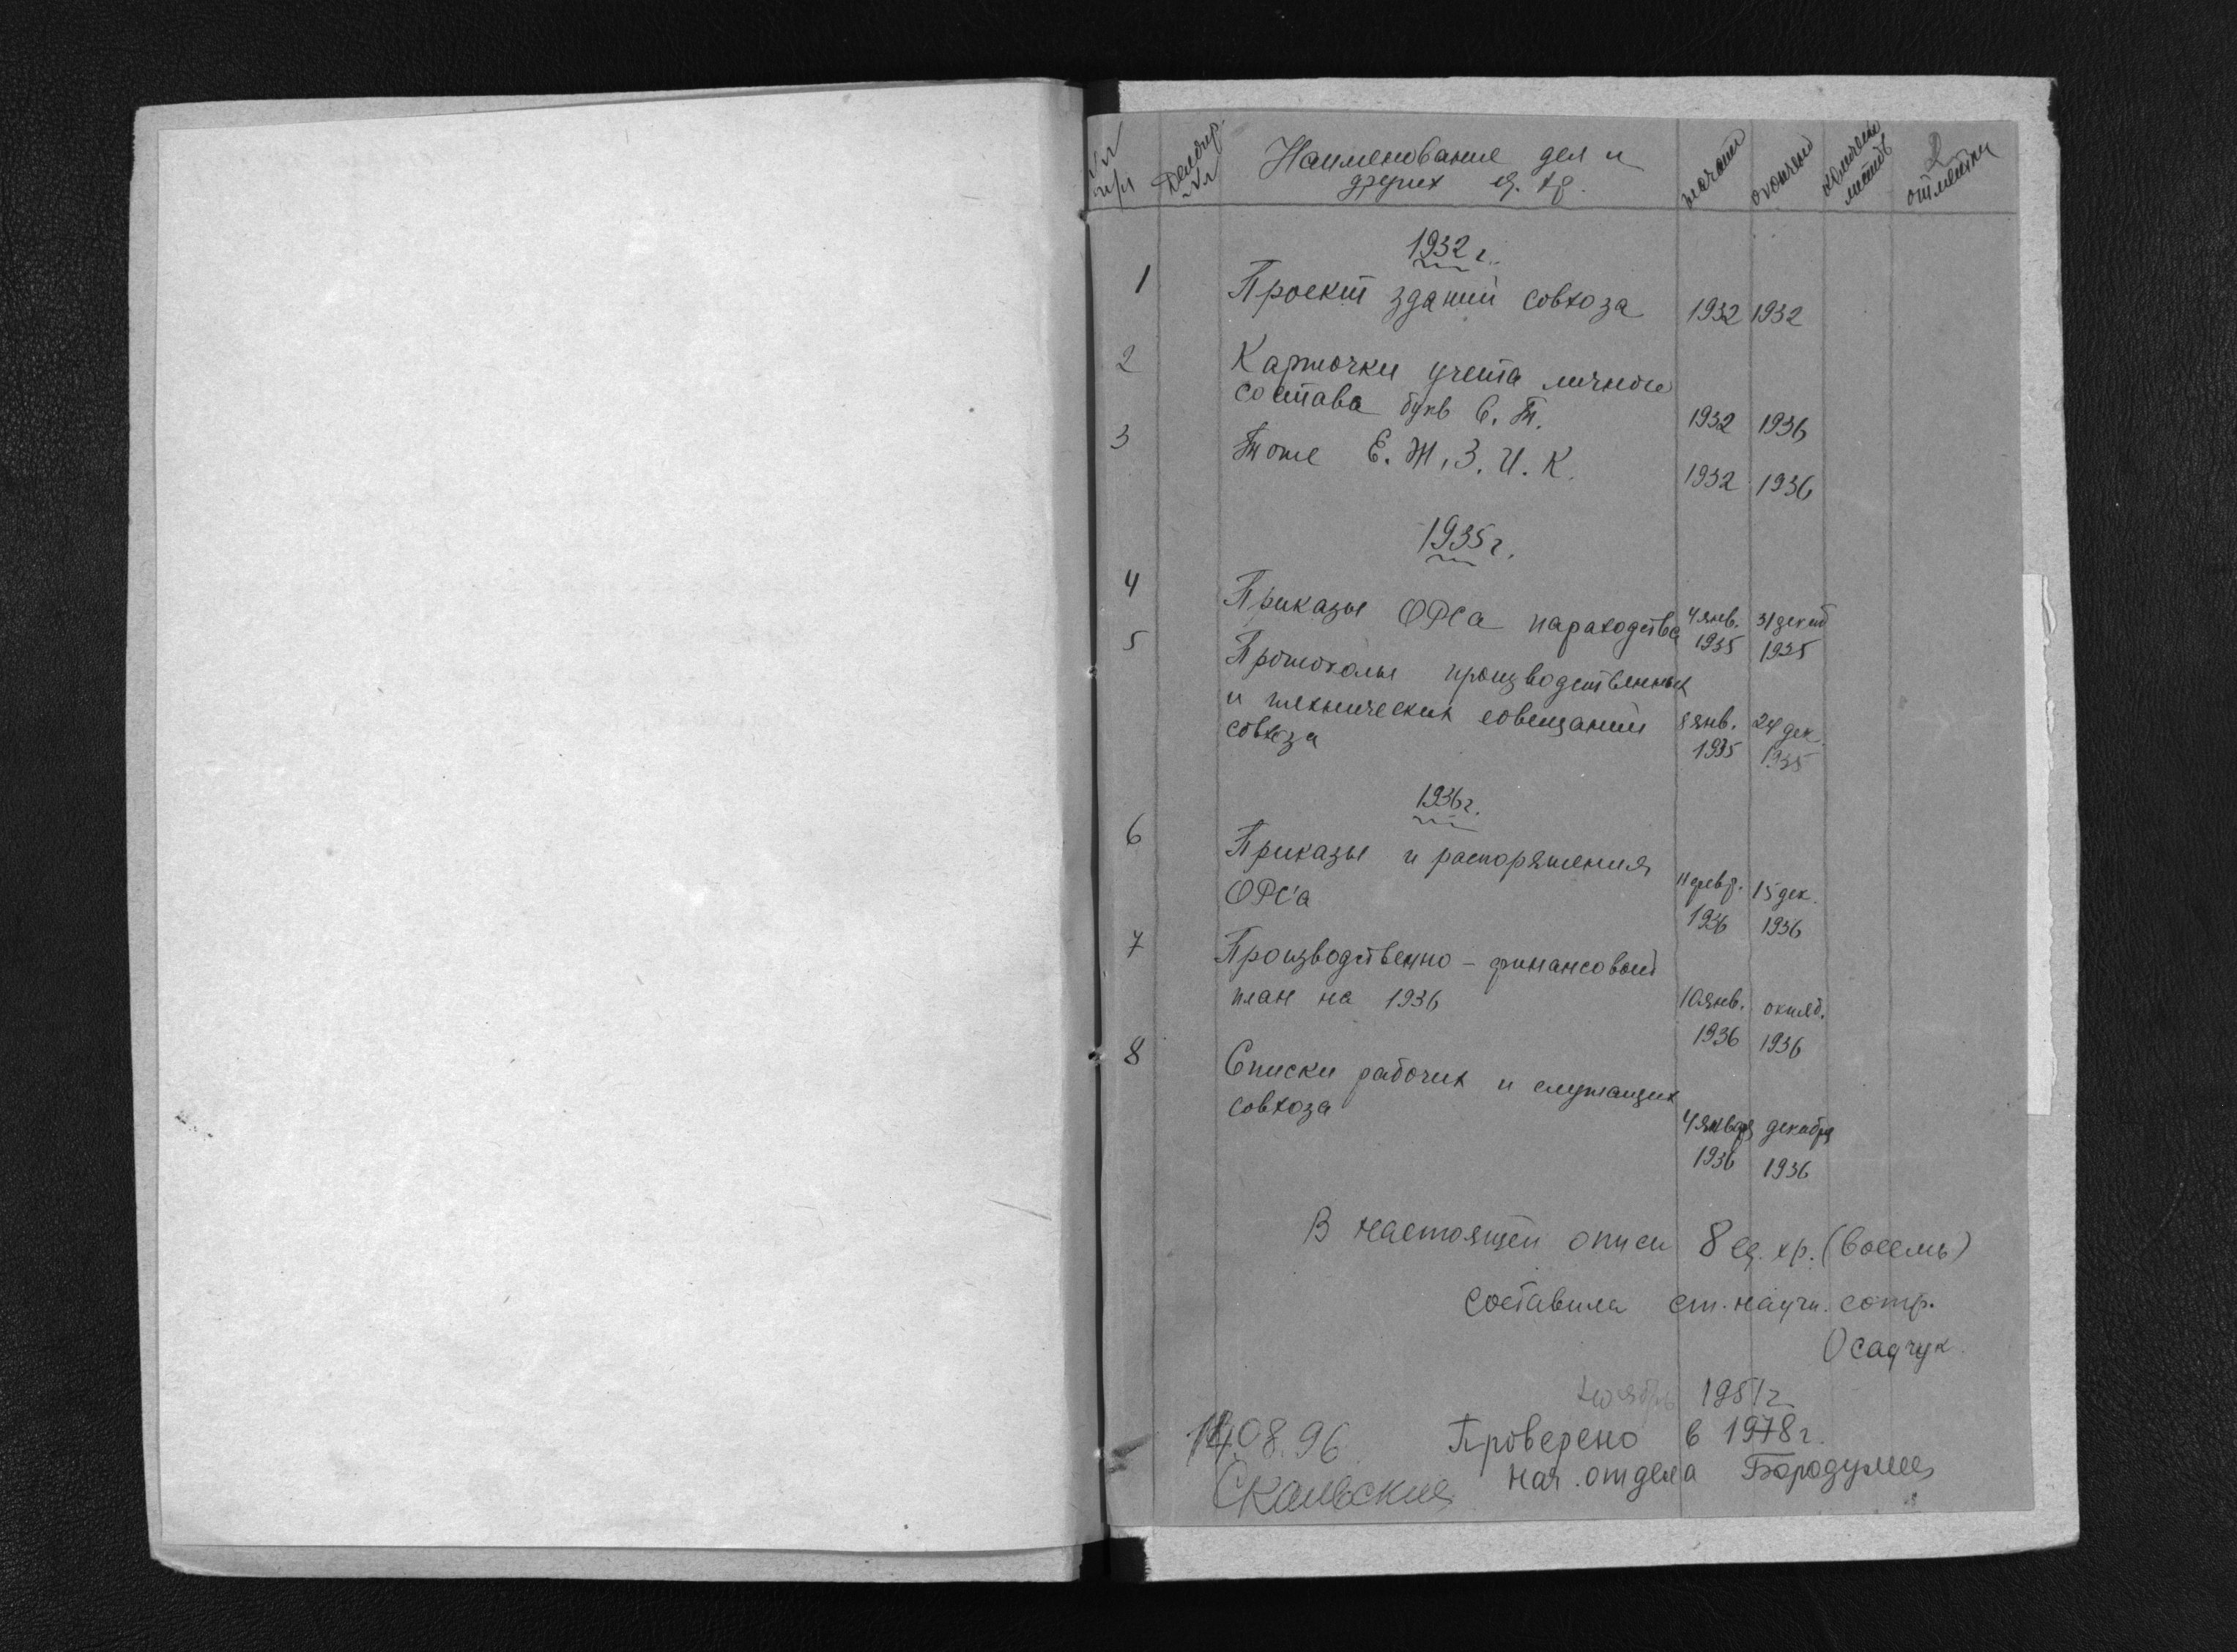 №№ п/п
Делопр. №№
Наименование дел и
других ед. хр.
начато
окончено
количеств. листов
2
отметки
1932 г.
1 Проект зданий совхоза 1932 1932
2 Карточки учета личного
состава букв С. Т. 1932 1936
3 Тоже Е. Ж, З. И. К. 1932 1936
1935 г.
4 Приказы ОРСа параходства 4 янв. 31 декаб
1935 1935
5 Протоколы производственных
и технических совещаний 8 янв. 24 дек.
совхоза 1935 1935
1936 г.
6 Приказы и распоряжения
ОРС'а 11 февр. 15 дек.
1936 1936
7 Производственно - финансовый
план на 1936 10 янв. октяб.
1936 1936
8 Списки рабочих и служащих
совхоза 4 января декабря
1936 1936
В настоящей описи 8 ед. хр. (восемь)
Составила ст. научн. сотр.
Осадчук
ноябрь 1951 г
08.96. Проверено в 1978 г.
нач. отдела